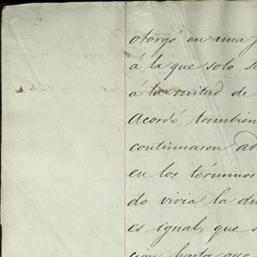 otorgó en una
á la que solo
á la mitad de
Acordó tambien
continuasen ad
en los términos
do vivia la du
es igual, que s
cion hasta que